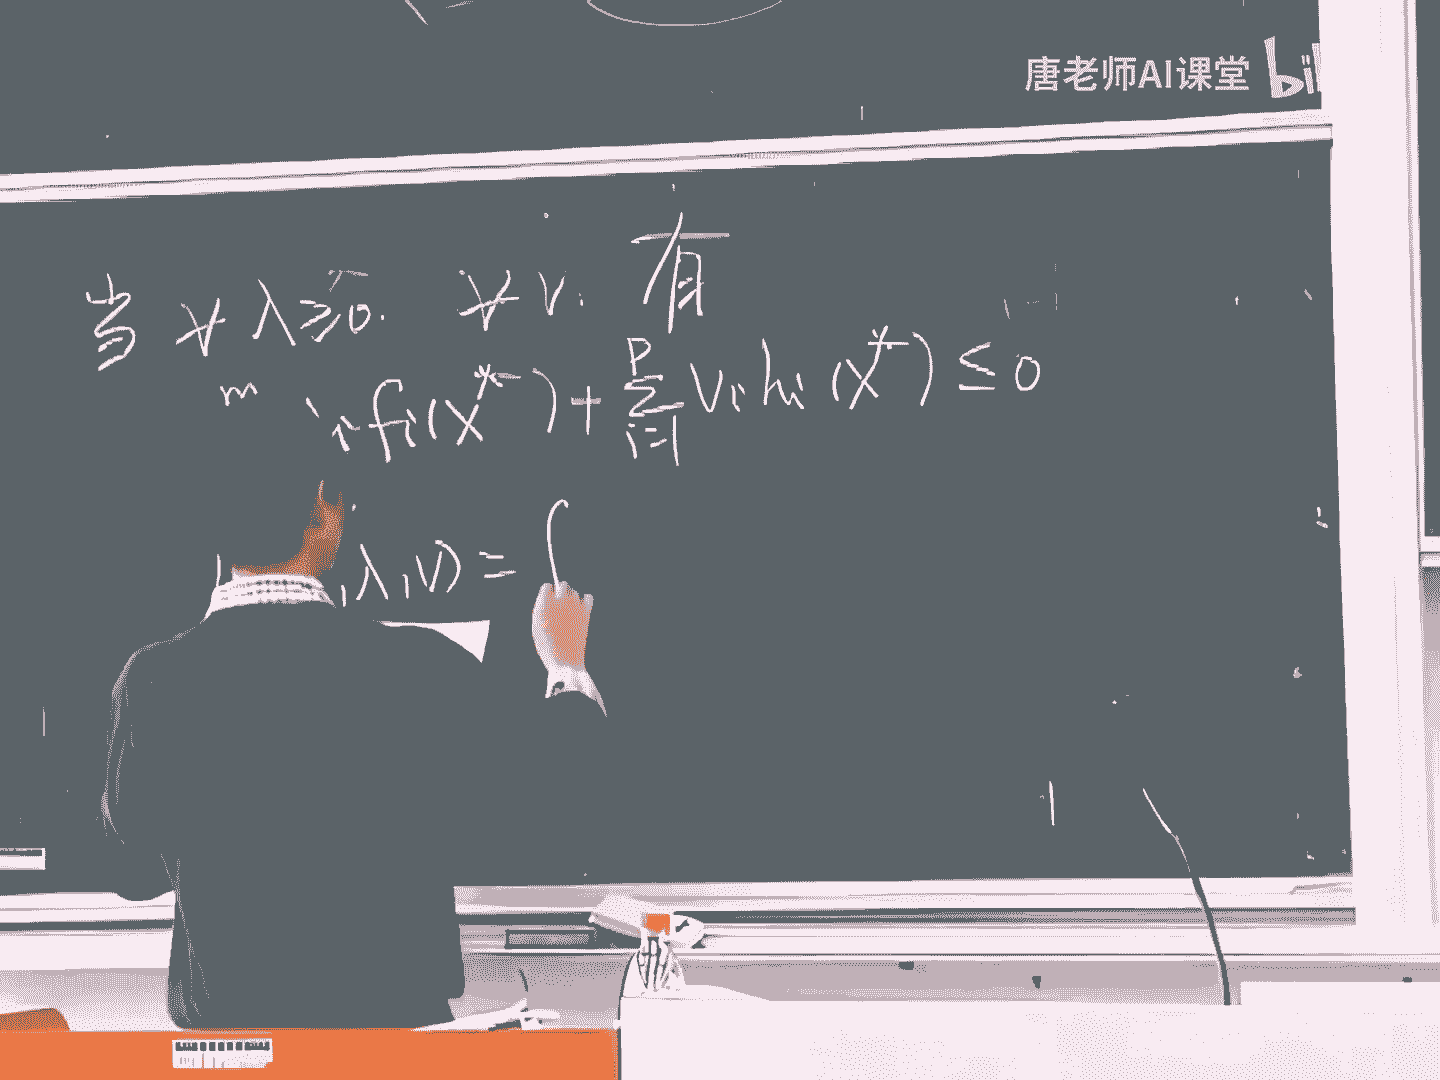 唐老师AI课堂 bil
当 ∀ λ≥0. ∀ v. 有
m i fi(x*) + Σ_{i=1}^{p} vi hi(x*) ≤ 0
, λ, v) =